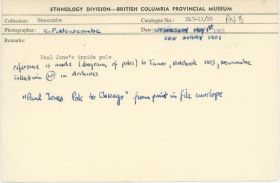 ETHNOLOGY DIVISION—BRITISH COLUMBIA PROVINCIAL MUSEUM
Collection: Newcombe Catalogue No.: PN 8
Photographer: C.F. Newcombe Date: 1901
SEE DIARY 1901
Remarks:
Paul Jone's inside pole
reference is made (diagram of poles) to Tanoo, Notebook 1903, Newcombe
Collection in Archives
"Paul Jones Pole to Chicago" from print in file envelope